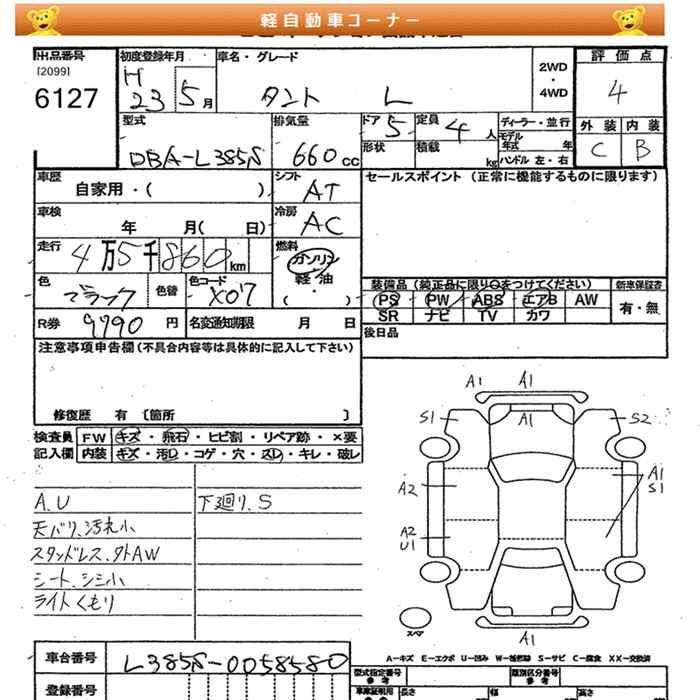 軽自動車コーナー
出品番号 初度登録年月 車名・グレード 2WD 評価点
[2099]
6127 H23 5月 タント L ・4WD 4
型式 排気量 ドア 5 定員 4人 ディーラー・並行 外装 内装
DBA-L385S 660cc 形状 積載 kg モデル年式 年 C B
ハンドル 左・右
車歴 自家用・( ) シフト AT セールスポイント (正常に機能するものに限ります)
車検 年 月( 日) 冷房 AC
走行 4万5千860km 燃料 ガソリン
軽・油
・( )
色 ブラック 色替 色コード X07 装備品(純正品に限り○をつけてください) 新車保証書
PS PW ABS エアB AW 有・無
SR ナビ TV カワ
R券 9790円 名変通知期限 月 日 後日品
注意事項申告欄(不具合内容等は具体的に記入して下さい)
修復歴 有〔箇所 〕
検査員 FW キズ・飛石・ヒビ割・リペア跡・×要
記入欄 内装 キズ・汚レ・コゲ・穴・スレ・キレ・破レ
A.U 下廻り.S
天バリ、汚れ小
スタッドレス、外AW
シート、シミ小
ライトくもり
A1 A1
S1 A1 S2
A2 A1
S1
A2
U1
スペア A1
A-キズ E-エクボ U-凹み W-補修跡 S-サビ C-腐食 XX-交換済
車台番号 L385S-0058580 型式指定番号 参考 類別区分番号 参考
登録番号 車庫証明用 長さ 幅 高さ